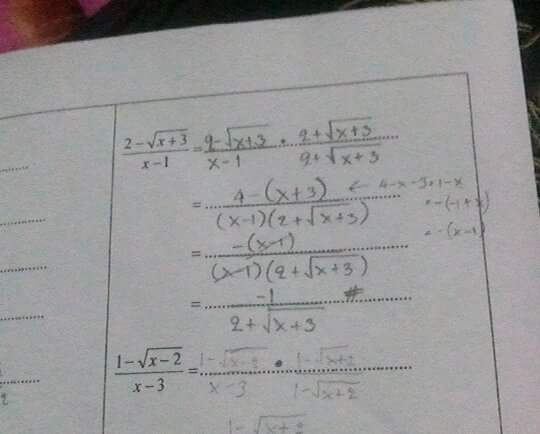 (2-√(x+3))/(x-1) = (2-√(x+3))/(x-1) · (2+√(x+3))/(2+√(x+3))
= (4-(x+3))/((x-1)(2+√(x+3))) ← 4-x-3=1-x
=-(-1+x)
= (-(x-1))/((x-1)(2+√(x+3))) =-(x-1)
= (-1)/(2+√(x+3)) #
(1-√(x-2))/(x-3) = (1-√(x-2))/(x-3) · (1-√(x+2))/(1-√(x+2))
1-√(x+2)